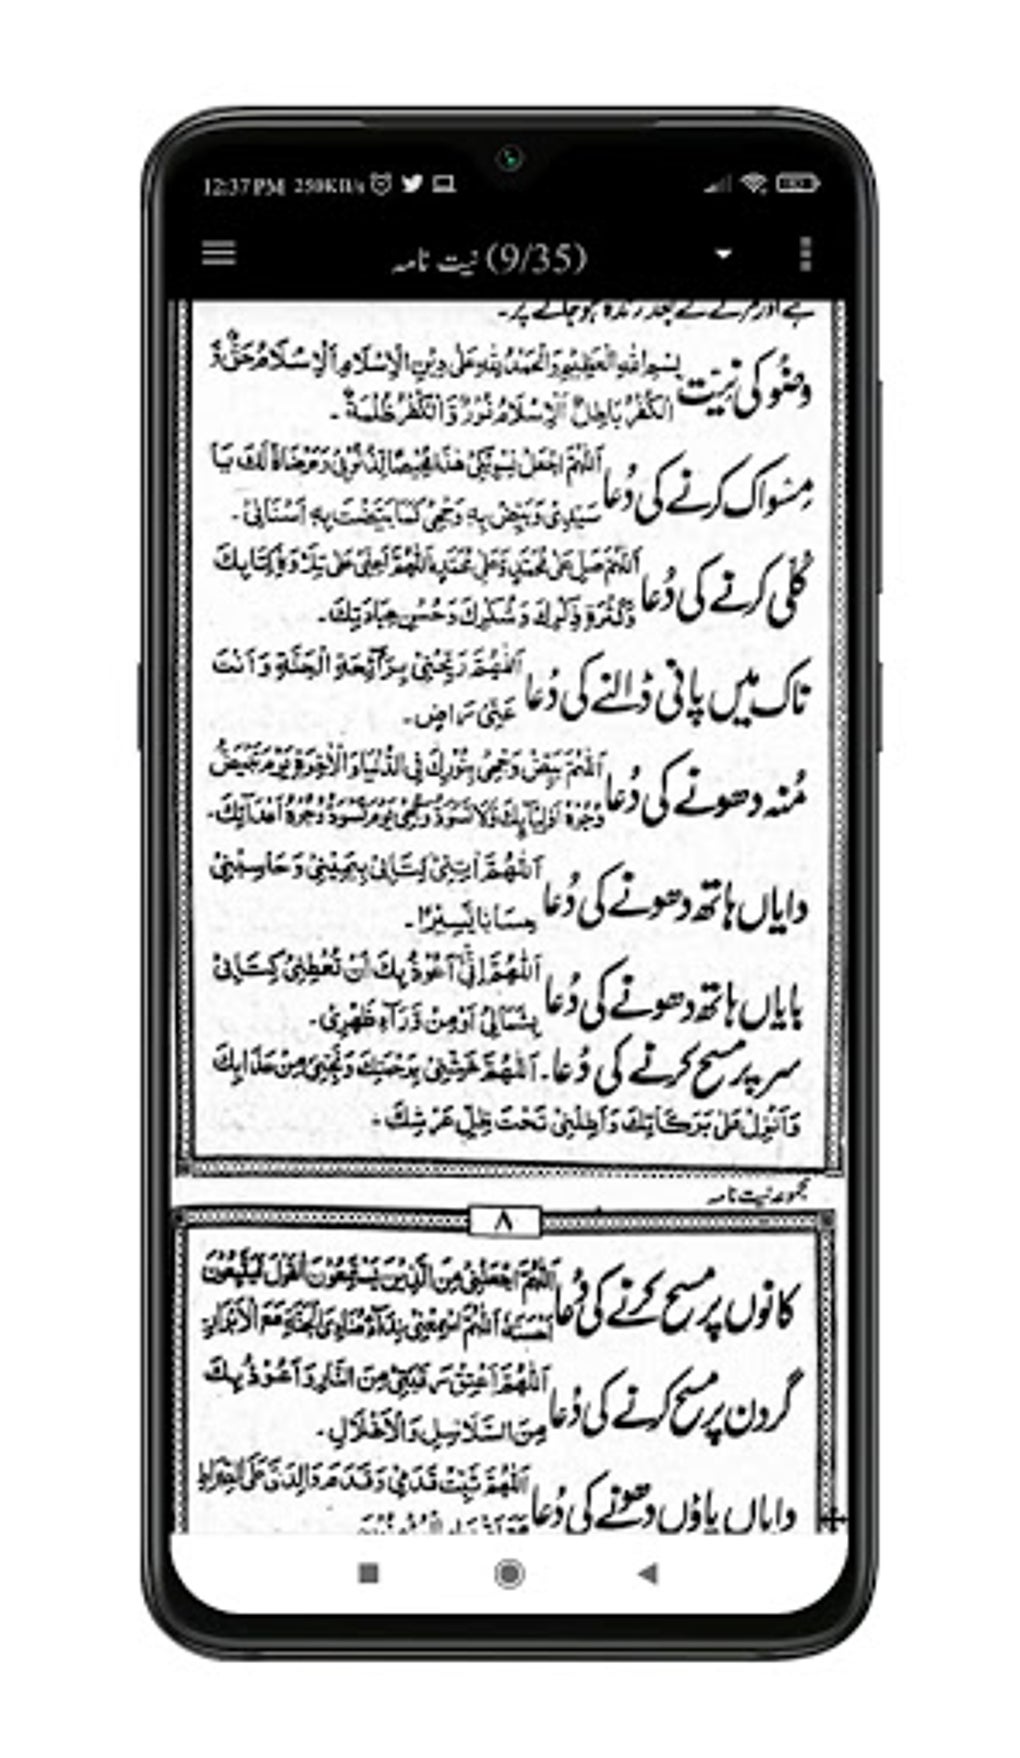 12:37 PM 250KB/s
نیت نامہ (9/35)
ہے اور مرنے کے بعد زندہ ہو جانے پر۔
وضُو کی نیّت بِسْمِ اللّٰهِ الْعَظِيْمِ وَالْحَمْدُ لِلّٰهِ عَلٰى دِيْنِ الْاِسْلَامِ اَلْاِسْلَامُ حَقٌّ وَّ
الْكُفْرُ بَاطِلٌ اَلْاِسْلَامُ نُوْرٌ وَّالْكُفْرُ ظُلْمَةٌ۔
مِسواک کرنے کی دُعا اَللّٰهُمَّ اجْعَلْ تَسْوِيْكِىْ هٰذَا تَمْحِيْصًا لِّذُنُوْبِىْ وَمَرْضَاةً لَّكَ يَا
سَيِّدِىْ وَبَيِّضْ بِهٖ وَجْهِىْ كَمَا بَيَّضْتَ بِهٖ اَسْنَانِىْ۔
کُلّی کرنے کی دُعا اَللّٰهُمَّ صَلِّ عَلٰى مُحَمَّدٍ وَّعَلٰى اَللّٰهُمَّ اَعِنِّىْ عَلٰى كِتَابِكَ
وَكَثْرَةِ ذِكْرِكَ وَشُكْرِكَ وَحُسْنِ عِبَادَتِكَ۔
ناک میں پانی ڈالنے کی دُعا اَللّٰهُمَّ رَيِّحْنِىْ بِرَآئِحَةِ الْجَنَّةِ وَاَنْتَ
عَنِّىْ رَاضٍ۔
مُنہ دھونے کی دُعا اَللّٰهُمَّ بَيِّضْ وَجْهِىْ بِنُوْرِكَ فِى الدُّنْيَا وَالْاٰخِرَةِ يَوْمَ تَبْيَضُّ
وُجُوْهُ اَوْلِيَآئِكَ وَلَا تُسَوِّدْ وَجْهِىْ يَوْمَ تَسْوَدُّ وُجُوْهُ اَعْدَآئِكَ۔
دایاں ہاتھ دھونے کی دُعا اَللّٰهُمَّ اٰتِنِىْ كِتَابِىْ بِيَمِيْنِىْ وَحَاسِبْنِىْ
حِسَابًا يَّسِيْرًا۔
بایاں ہاتھ دھونے کی دُعا اَللّٰهُمَّ اِنِّىْ اَعُوْذُ بِكَ اَنْ تُعْطِيَنِىْ كِتَابِىْ
بِشِمَالِىْ اَوْ مِنْ وَّرَآءِ ظَهْرِىْ۔
سر پر مسح کرنے کی دُعا۔ اَللّٰهُمَّ غَشِّنِىْ بِرَحْمَتِكَ وَنَجِّنِىْ مِنْ عَذَابِكَ
وَاَنْزِلْ عَلَىَّ بَرَكَاتِكَ وَاَظِلَّنِىْ تَحْتَ ظِلِّ عَرْشِكَ۔
مجموعہ نیت نامہ
٨
کانوں پر مسح کرنے کی دُعا اَللّٰهُمَّ اجْعَلْنِىْ مِنَ الَّذِيْنَ يَسْتَمِعُوْنَ الْقَوْلَ فَيَتَّبِعُوْنَ
اَحْسَنَهٗ اَللّٰهُمَّ اَسْمِعْنِىْ الْجَنَّةِ مَعَ الْاَبْرَارِ
گردن پر مسح کرنے کی دُعا اَللّٰهُمَّ اَعْتِقْ رَقَبَتِىْ مِنَ النَّارِ وَاَعُوْذُ بِكَ
مِنَ السَّلَاسِلِ وَالْاَغْلَالِ۔
دایاں پاؤں دھونے کی دُعا اَللّٰهُمَّ ثَبِّتْ قَدَمِىْ وَقَدَمَ وَالِدَىَّ عَلَى الصِّرَاطِ